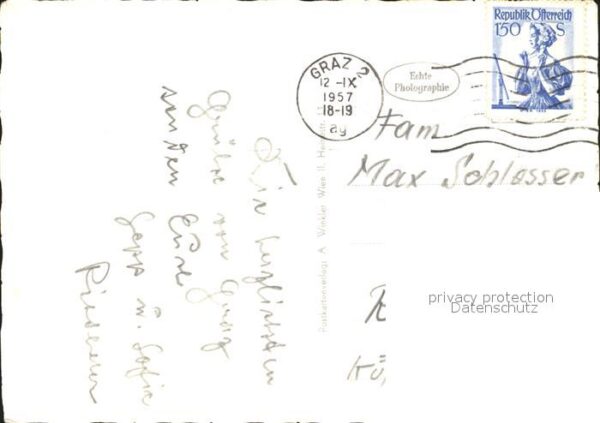 Republik Österreich
1.50 S
GRAZ 2
12 -IX
1957
18-19
Echte
Photographie
Fam
Max Schlosser
Kü,
privacy protection
Datenschutz
Postkartenverlag A. Winkler Wien II.
Die herzlichsten
Grüße von Graz
senden Eure
Sepp u. Sofie